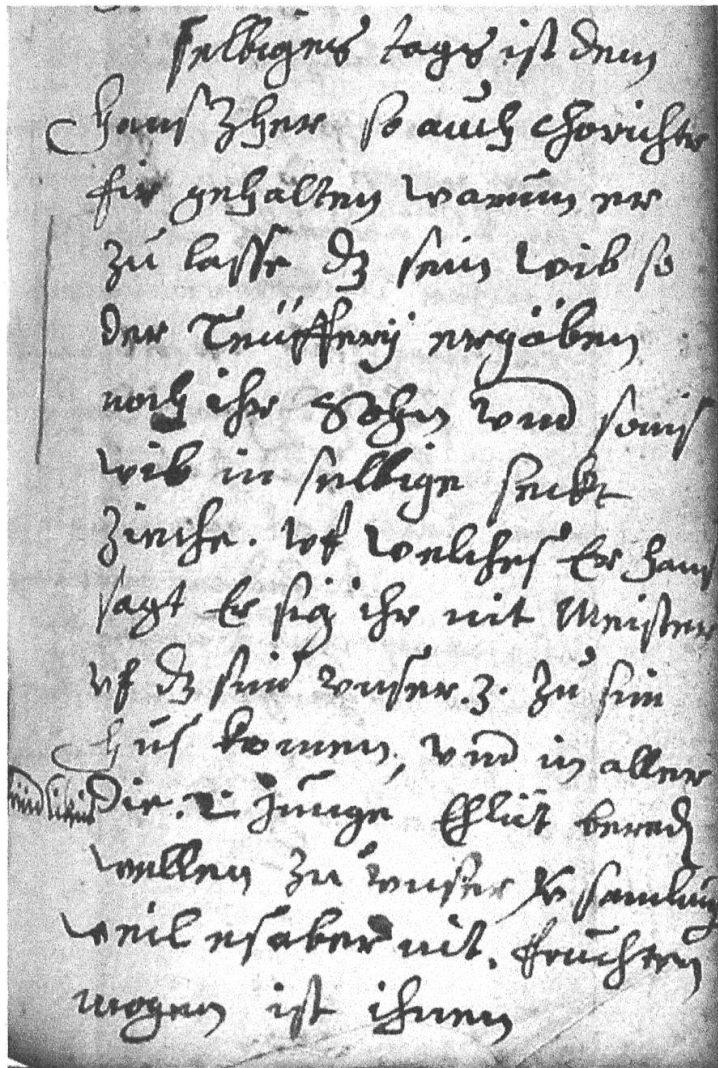 selbiges tags ist dem
Hans Zher so auch chorichter
für gehalten warum er
zu lasse dz sein wib so
der Teüfferÿ ergäben
noch ihr Sohn vnd sonis
wib in selbige seckt
Ziehe. Vf welches Er Hans
sagt Er sig ihr nit Meister
vf dz sind vnser .3. Zu sim
Hus komen, vnd in aller
Die .2. junge Ehlüt bereden
wellen zu vnser Versamlung
weil es aber nit fruchten
mogen ist ihnen